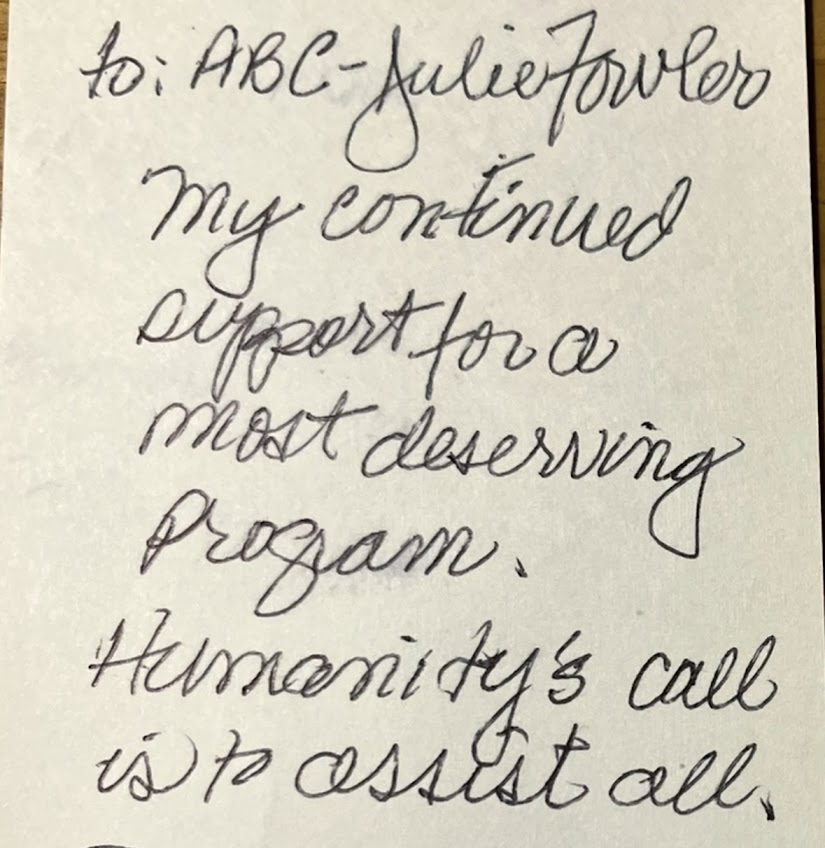 to: ABC-Julie Fowler
My continued
support for a
most deserving
Program.
Humanity's call
is to assist all.